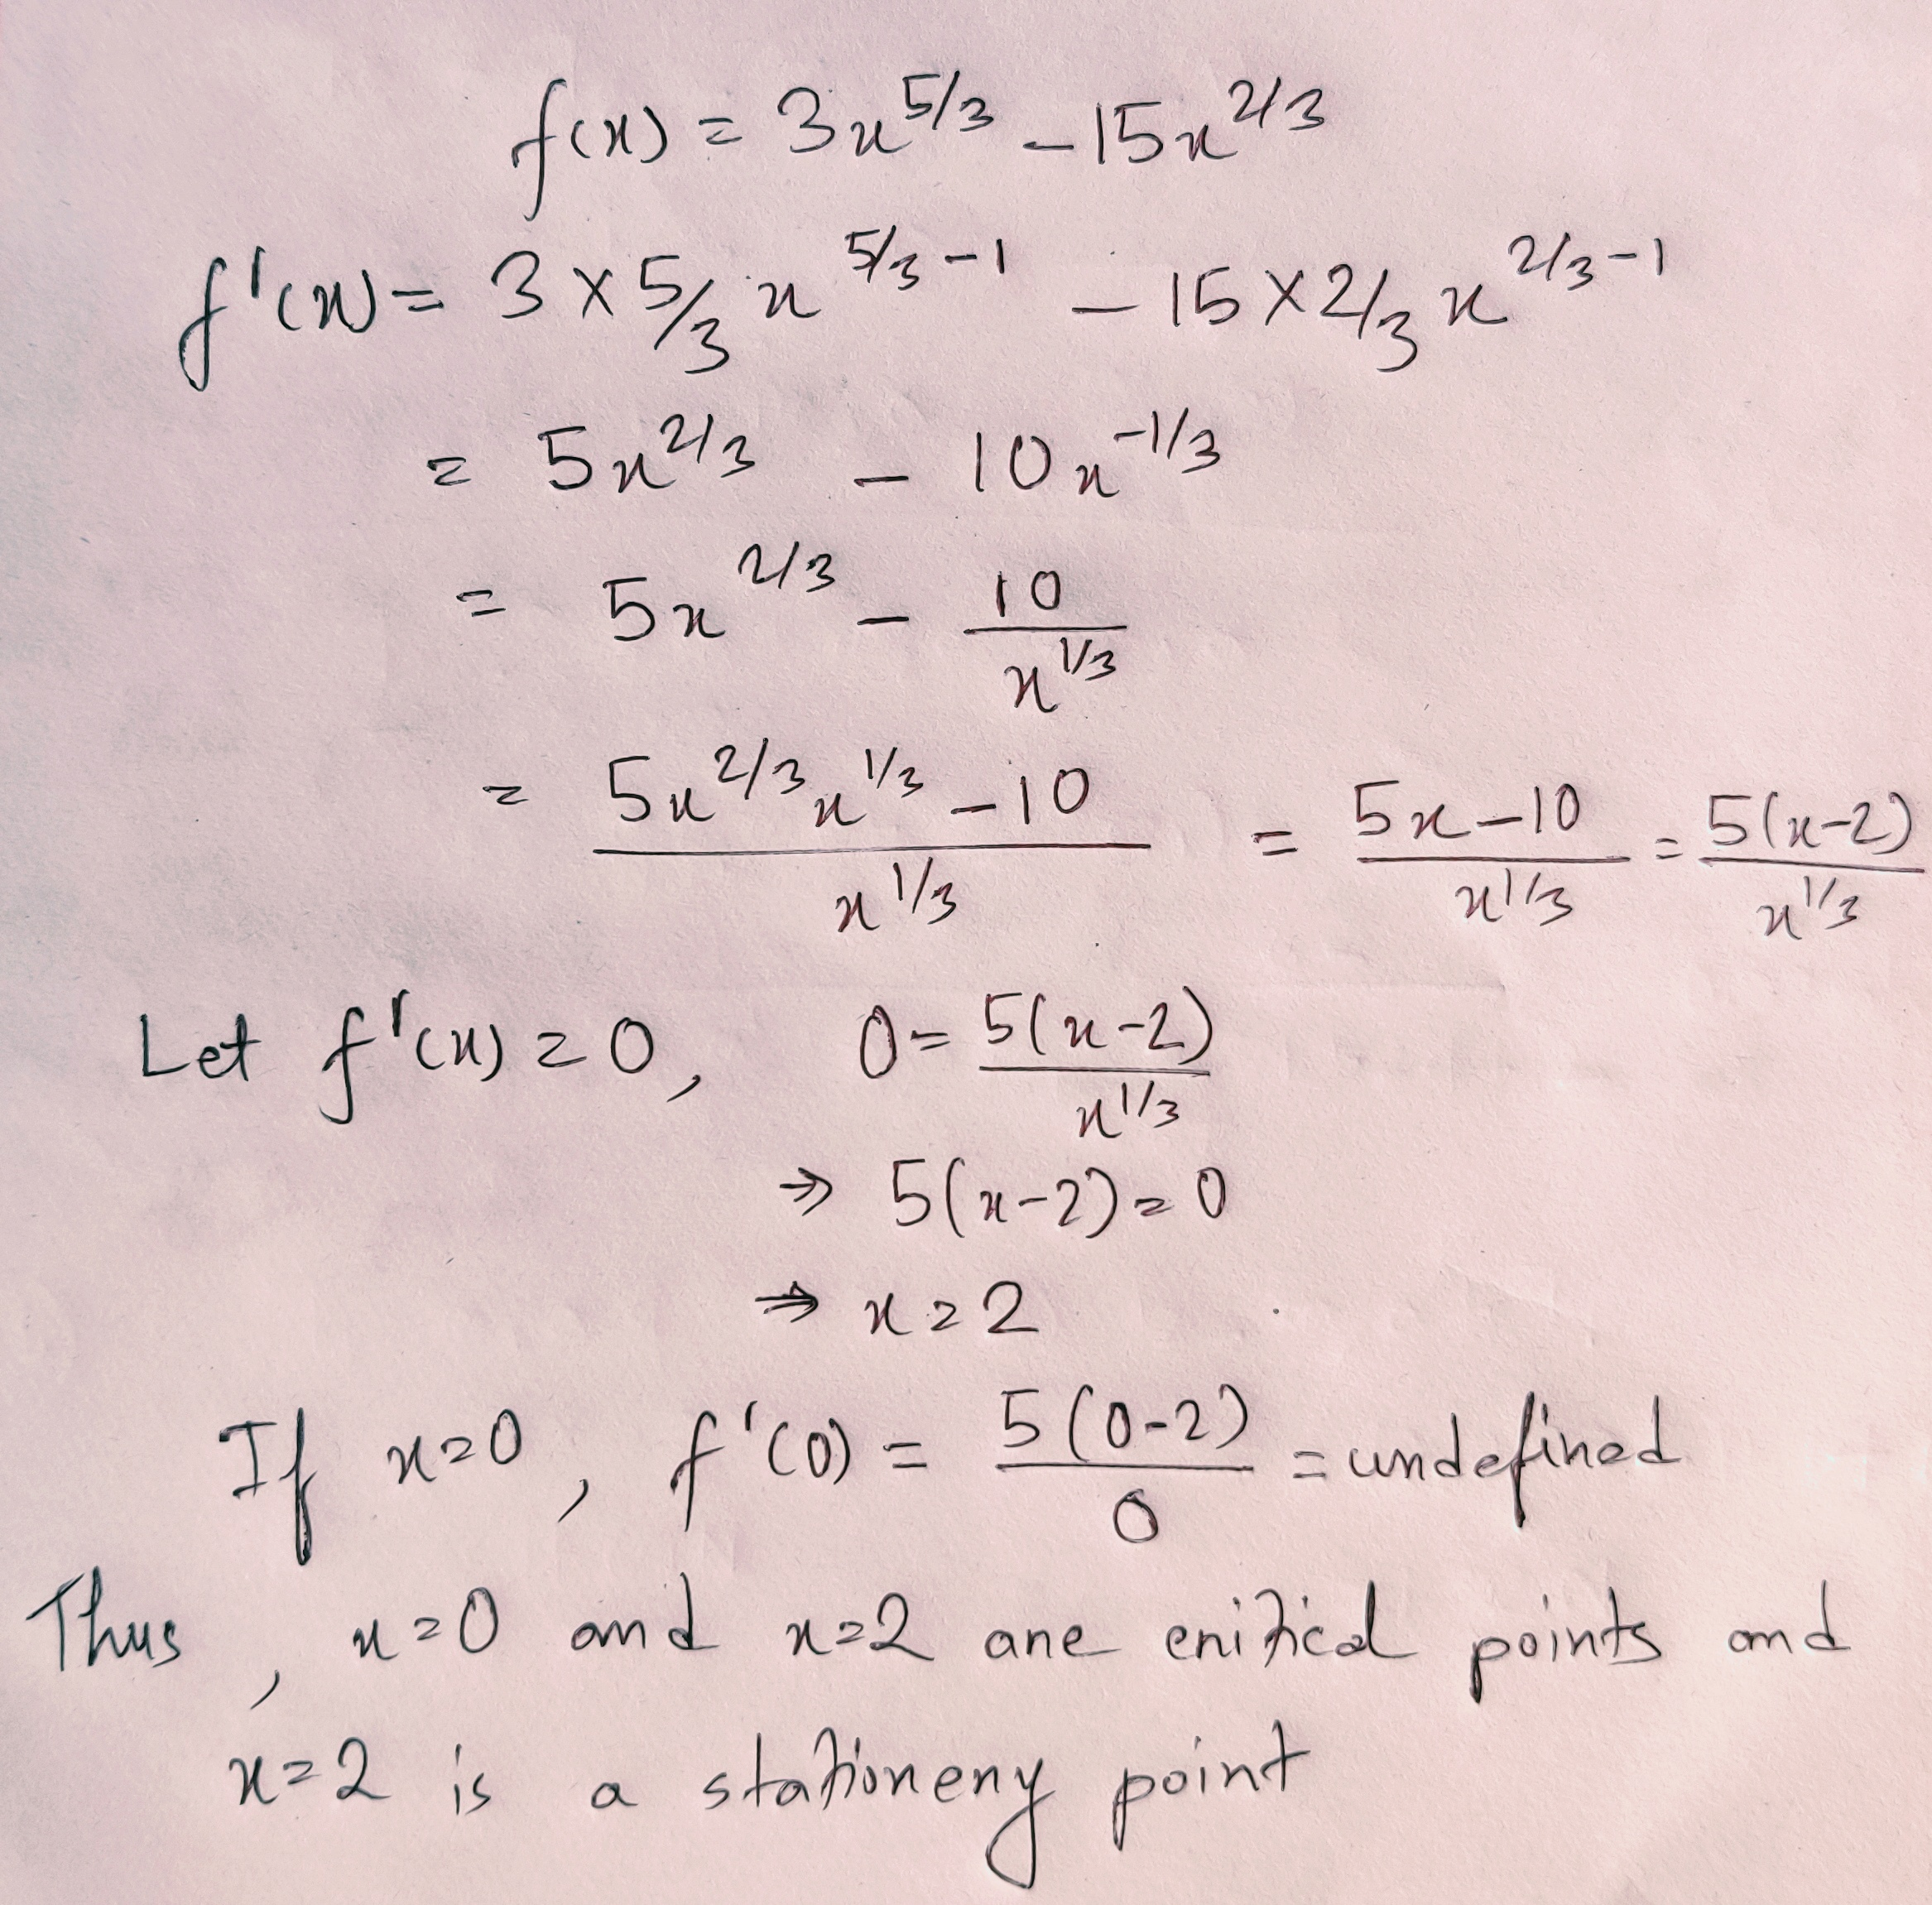 f(x) = 3x^{5/3} - 15x^{2/3}
f'(x) = 3 × 5/3 x^{5/3-1} - 15 × 2/3 x^{2/3-1}
= 5x^{2/3} - 10x^{-1/3}
= 5x^{2/3} - \frac{10}{x^{1/3}}
= \frac{5x^{2/3} x^{1/3} - 10}{x^{1/3}} = \frac{5x-10}{x^{1/3}} = \frac{5(x-2)}{x^{1/3}}
Let f'(x) = 0, 0 = \frac{5(x-2)}{x^{1/3}}
⇒ 5(x-2) = 0
⇒ x = 2
If x=0, f'(0) = \frac{5(0-2)}{0} = undefined
Thus, x=0 and x=2 are critical points and
x=2 is a stationery point